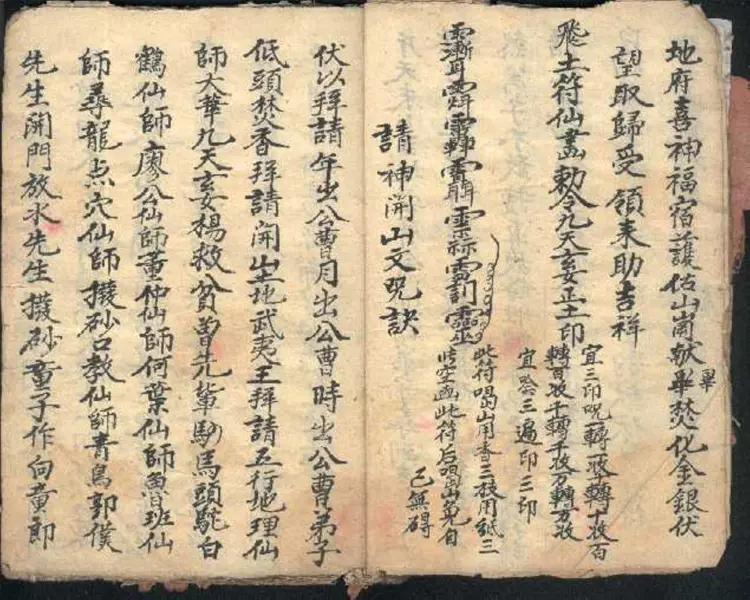 地府喜神福宿並護佑山崗献畢焚化金銀伏
畢
望取歸受領来助吉祥
宜三印咒一轉一收十轉十收百
轉百收千轉千收万轉万收
宜念三遍印三印
飛土符仙畵勅令九天玄正土印
此符喝山用香三枝用紙三
些空画此符后喝山免自
己無碍
請神開山文咒訣
伏以拜請年出公曹月出公曹時出公曹弟子
低頭焚香拜請開山土地武夷王拜請五行地理仙
師大華九天玄楊救貧曽先輩馬頭駝白
鶴仙師廖公仙師董仲仙師何葉仙師魯班仙
師尋龍点穴仙師撥砂口教仙師青烏郭僕
先生開門放水先生撥砂童子作向童郎